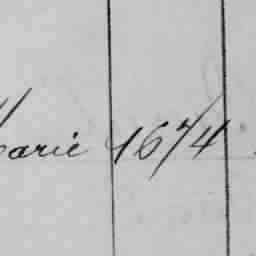 Marie 1674